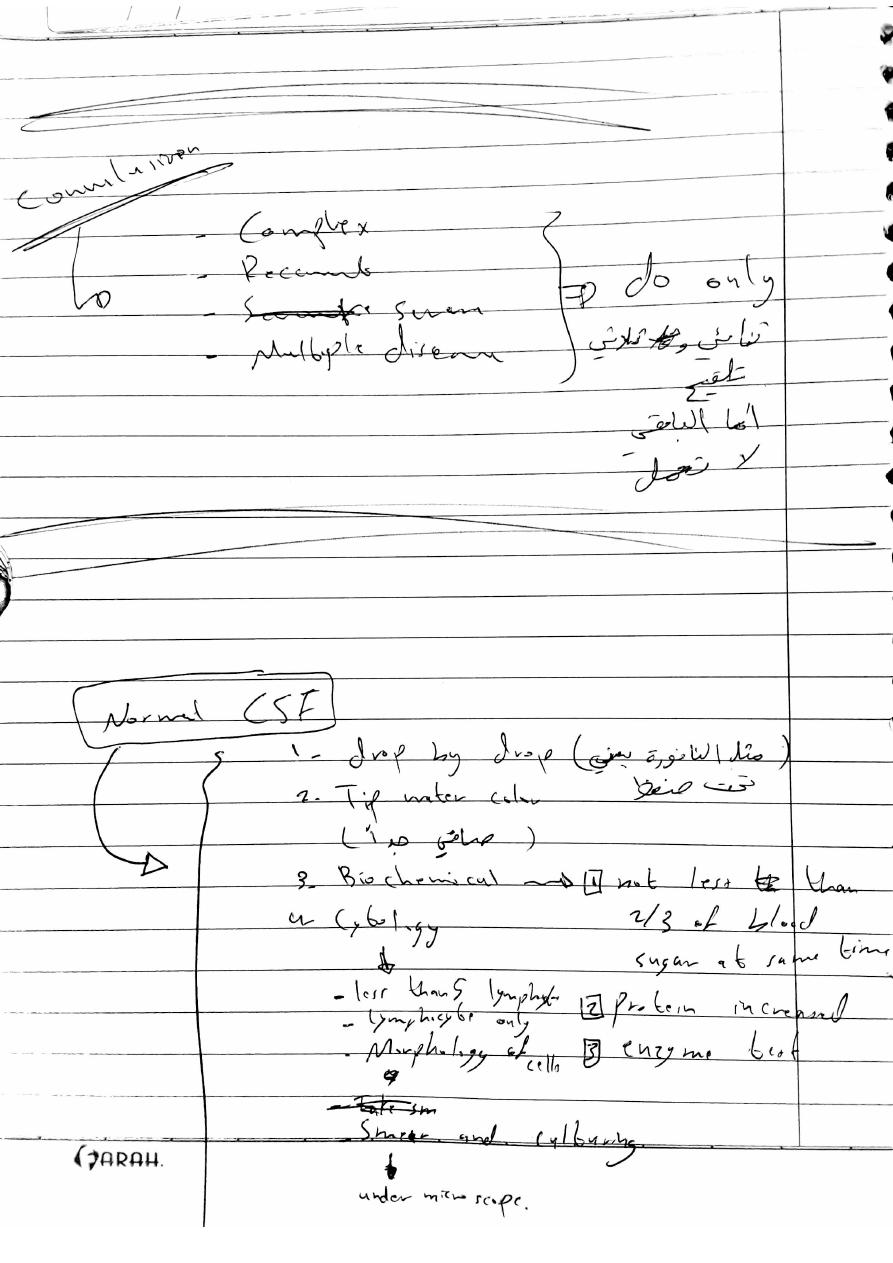 Convulsion
- Complex
- Recurrent
- Severe
- Multiple disease
=> do only
ثنائي و ثلاثي
تلقيح
أما الباقي
لا تعمل
Normal CSF
1- drop by drop (مثل النافورة يعني)
تحت ضغط
2. Tip water color
(صافي جداً)
3- Biochemical → 1 not less than
2/3 of blood
sugar at same time
4- Cytology
- less than 5 lymphocyte
- lymphocyte only
- Morphology of cells
2 Protein increased
3 enzyme test
Smear and culturing
under microscope.
SARAH.